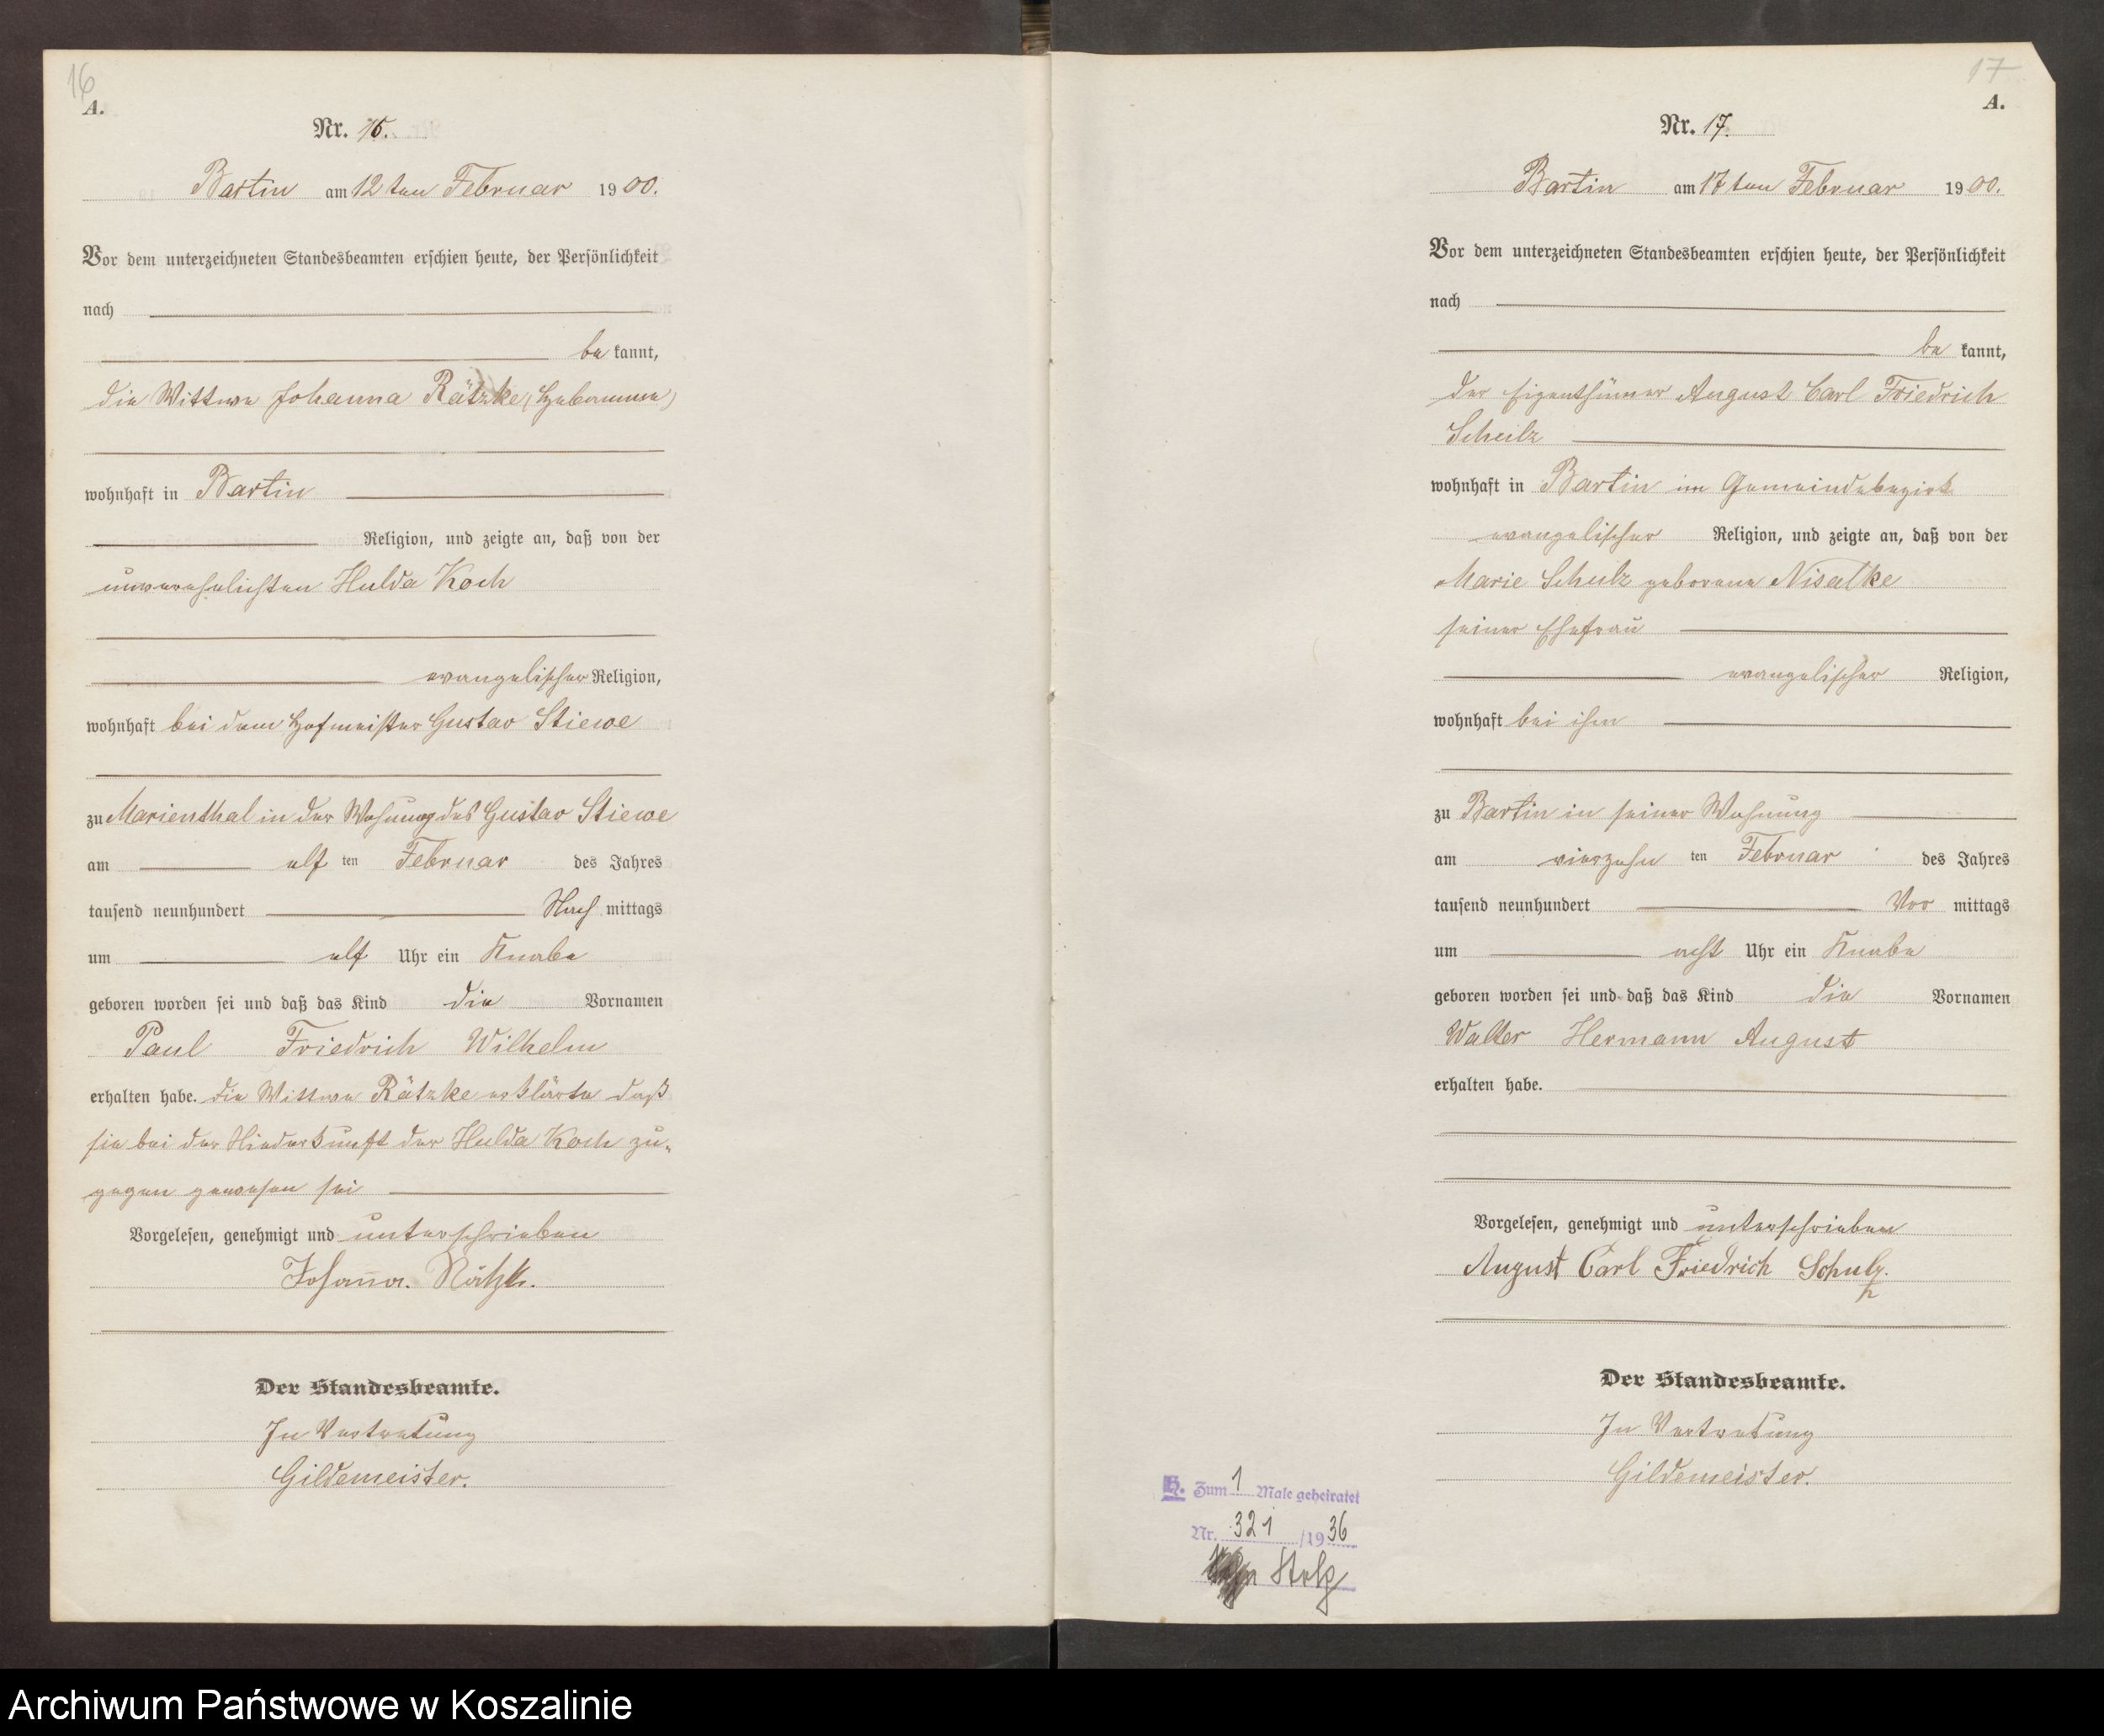 16
A.
Nr. 16.
Bartin am 12 ten Februar 1900.
Vor dem unterzeichneten Standesbeamten erschien heute, der Persönlichkeit
nach
be kannt,
die Wittwe Johanna Rätzke, (Hebamme)
wohnhaft in Bartin
Religion, und zeigte an, daß von der
unverehelichten Hulda Koch
evangelischer Religion,
wohnhaft bei dem Hofmeister Gustav Stiewe
zu Marienthal in der Wohnung des Gustav Stiewe
am elf ten Februar des Jahres
tausend neunhundert Nach mittags
um elf Uhr ein Knabe
geboren worden sei und daß das Kind die Vornamen
Paul Friedrich Wilhelm
erhalten habe. die Wittwe Rätzke erklärte daß
sie bei der Niederkunft der Hulda Koch zu-
gegen gewesen sei
Vorgelesen, genehmigt und unterschrieben
Johanna Rätzke.
Der Standesbeamte.
In Vertretung
Gildemeister.
17
A.
Nr. 17.
Bartin am 17 ten Februar 1900.
Vor dem unterzeichneten Standesbeamten erschien heute, der Persönlichkeit
nach
be kannt,
der Eigenthümer August Carl Friedrich
Schulz
wohnhaft in Bartin im Gemeindebezirk
evangelischer Religion, und zeigte an, daß von der
Marie Schulz geborene Nisalke
seiner Ehefrau
evangelischer Religion,
wohnhaft bei ihm
zu Bartin in seiner Wohnung
am vierzehn ten Februar des Jahres
tausend neunhundert Vor mittags
um acht Uhr ein Knabe
geboren worden sei und daß das Kind die Vornamen
Walter Hermann August
erhalten habe.
Vorgelesen, genehmigt und unterschrieben
August Carl Friedrich Schulz.
Der Standesbeamte.
In Vertretung
Gildemeister.
H. Zum 1 Male geheiratet
Nr. 321 /1936
Stolp
Archiwum Państwowe w Koszalinie